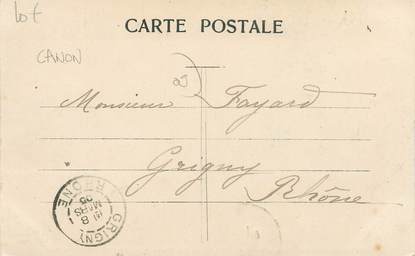 lot
CARTE POSTALE
CANON
Monsieur Fayard
Grigny
Rhône
GRIGNY
RHONE
8
MARS
05